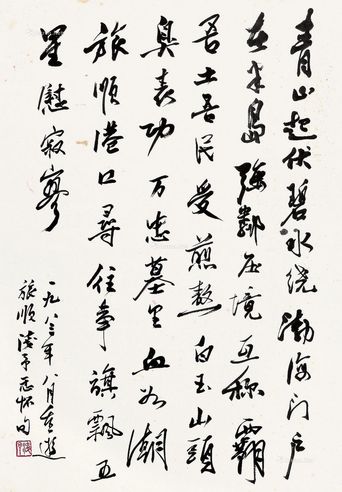 青山起伏碧水绕渤海门户
在半岛强邻压境互称霸
吾土吾民受煎熬白玉山头
臭表功万忠墓里血如潮
旅顺港口寻往事旗飘五
星慰寂寥
一九八三年八月重游
旅顺 怀句